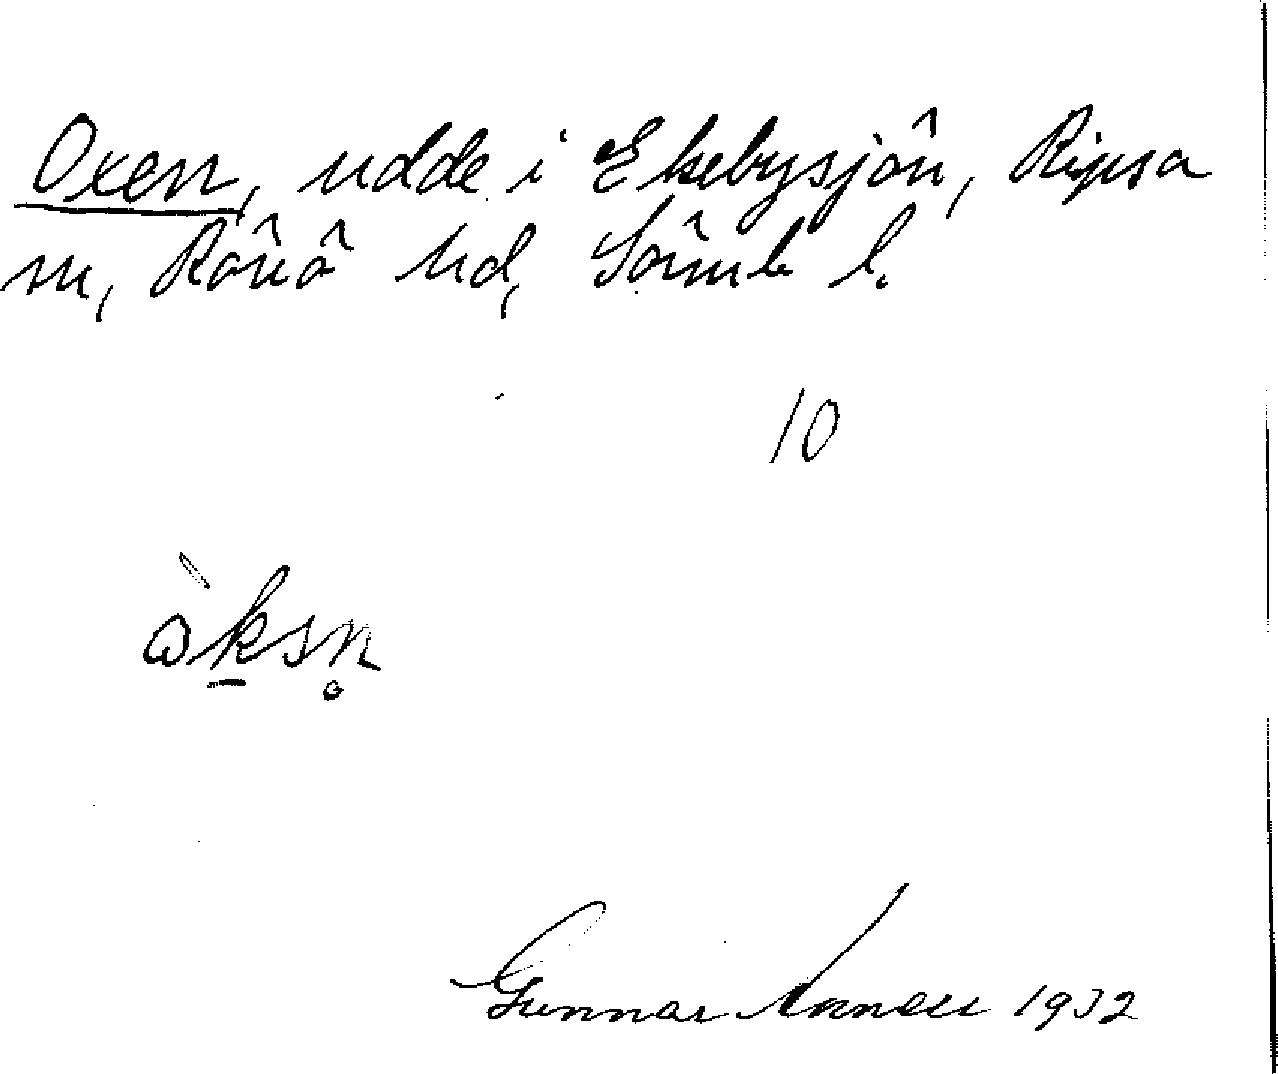 Oxen, udde i Ekebysjön, Ripsa
sn, Rönö hd, Sörml l.
10
ɷ̀ks̠n̥
Gunnar 1932